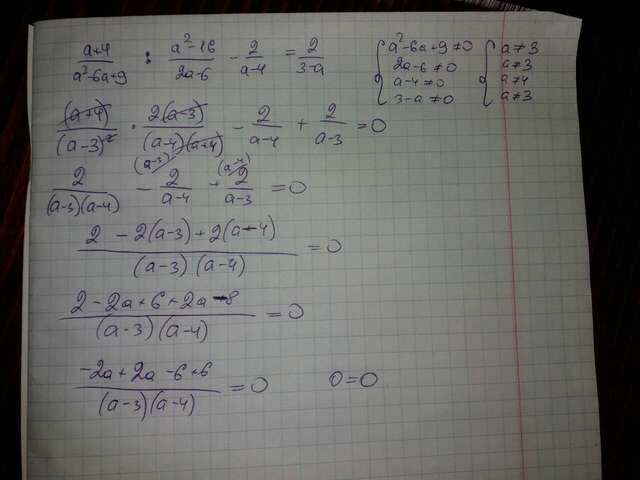 (a+4)/(a²-6a+9) : (a²-16)/(2a-6) - 2/(a-4) = 2/(3-a)
{ a²-6a+9≠0
2a-6≠0
a-4≠0
3-a≠0
{ a≠3
a≠3
a≠4
a≠3
(a+4)/(a-3)² · 2(a-3)/((a-4)(a+4)) - 2/(a-4) + 2/(a-3) = 0
2/((a-3)(a-4)) - (a-3) 2/(a-4) + (a-4) 2/(a-3) = 0
(2 - 2(a-3) + 2(a-4))/((a-3)(a-4)) = 0
(2-2a+6+2a-8)/((a-3)(a-4)) = 0
(-2a+2a-6+6)/((a-3)(a-4)) = 0
0=0